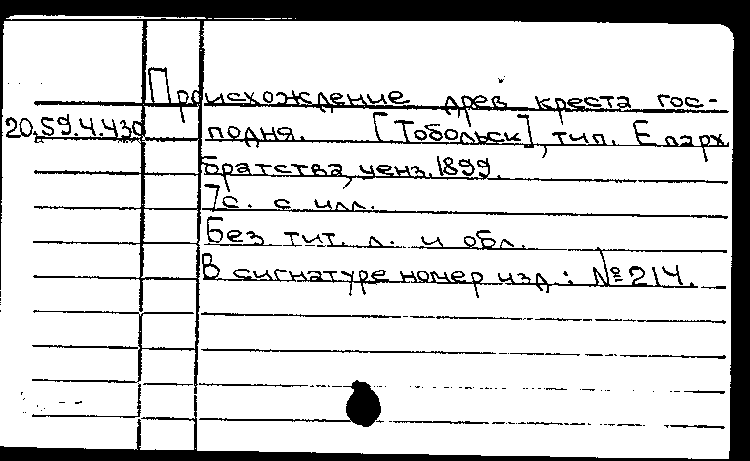 Происхождение древ креста гос-
20.59.4.430 подня. [Тобольск], тип. Епарх
братства, ценз. 1899.
7с. с илл.
Без тит. л. и обл.
В сигнатуре номер изд.: №214.